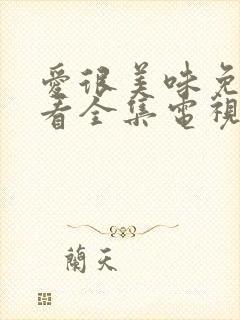 愛很美味免
看全集電視
蘭天